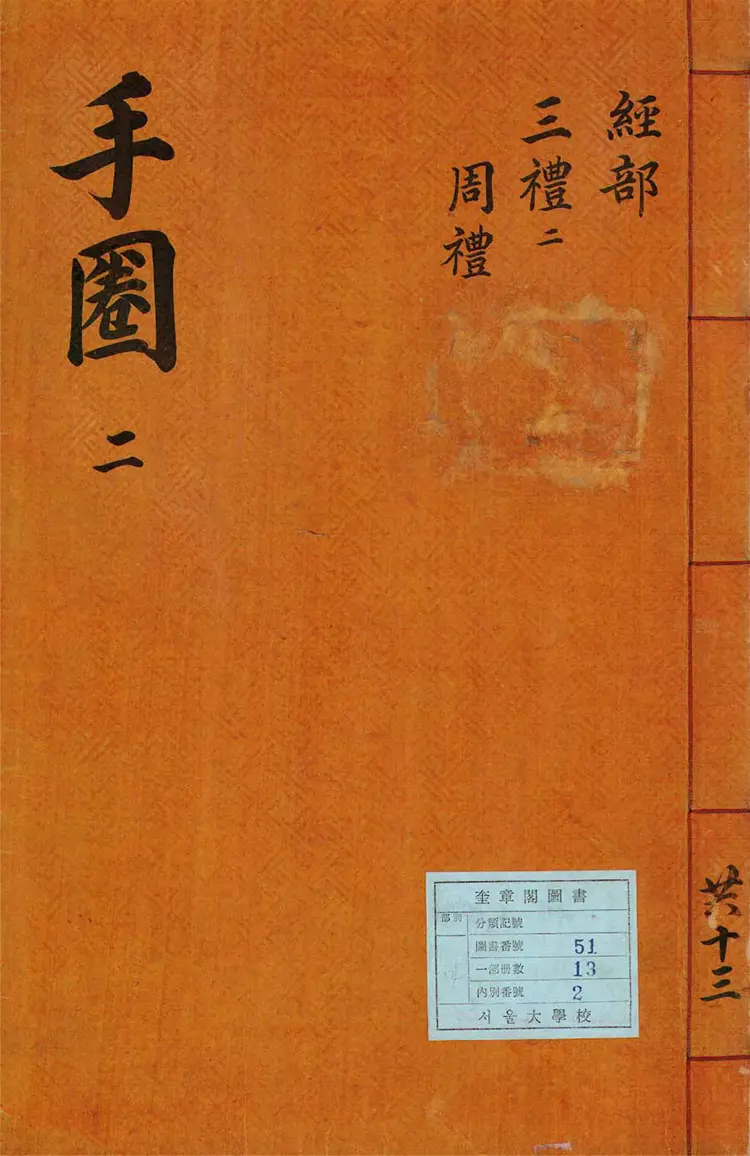 經部
三禮二
周禮
手圈二
共十三
奎章閣圖書
部別
分類記號
圖書番號 51
一部冊數 13
內別番號 2
서울大學校